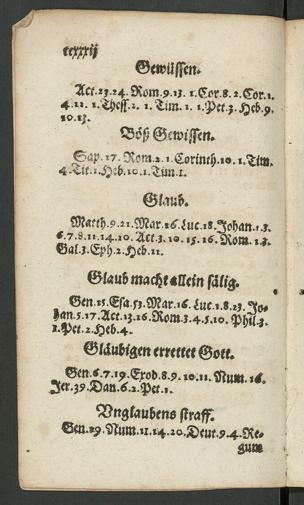 ccxxxij
Gewüssen.
Act.23.24. Rom.9.13. 1.Cor.8.2.Cor.1.
4.12. 1. Thess.2. 1. Tim. 1. 1.Pet.3. Heb.9.
10.13.
Böß Gewissen.
Sap. 17. Rom.2.1.Corinth.10.1.Tim.
4.Tit.1.Heb.10.1.Tim.1.
Glaub.
Matth.9.21.Mar.16.Luc.18.Johan.1.3.
6.7.8.11.14.10. Act.3.10.15.16. Rom.1.3.
Gal.3.Eph.2.Heb.11.
Glaub macht allein sälig.
Gen.15.Esa.53.Mar.16.Luc.1.8.23. Jo-
han.5.17.Act.13.16.Rom.3.4.5.10. Phil.3.
1.Pet.2.Heb.4.
Gläubigen errettet Gott.
Gen.6.7.19.Exod.8.9.10.11.Num.16.
Jer.39.Dan.6.2.Pet.1.
Vnglaubens straff.
Gen.19.Num.11.14.20.Deut.9.4.Re-
gum